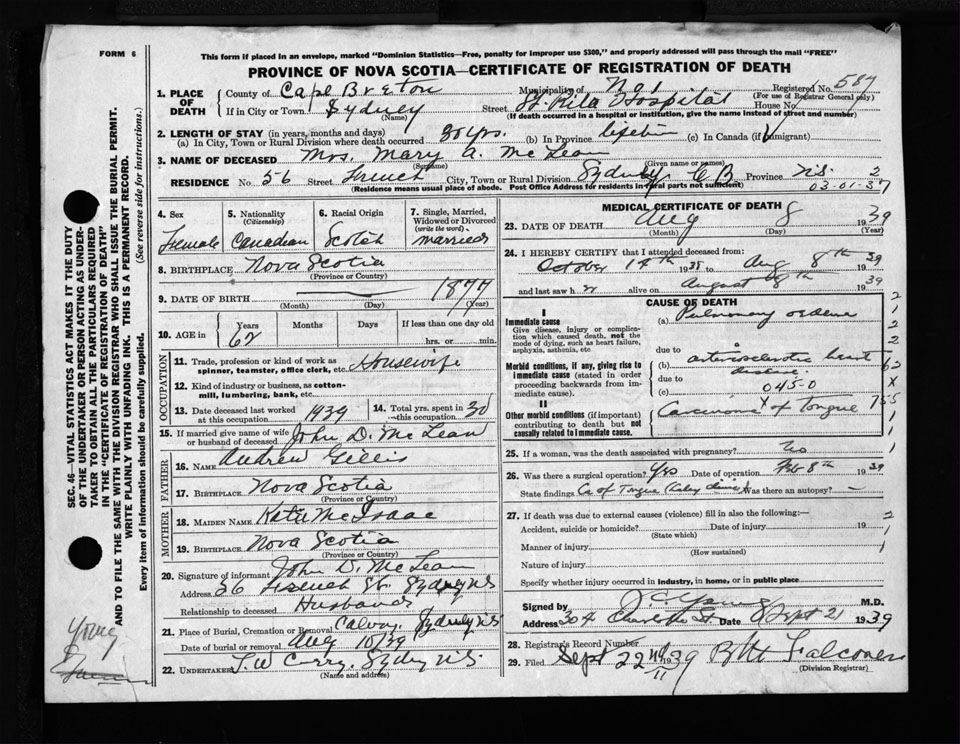 FORM 6
This form if placed in an envelope, marked "Dominion Statistics—Free, penalty for improper use $300," and properly addressed will pass through the mail "FREE"
PROVINCE OF NOVA SCOTIA—CERTIFICATE OF REGISTRATION OF DEATH
1. PLACE OF DEATH
County of Cape Breton Municipality of No 1 Registered No. 587
(For use of Registrar General only)
If in City or Town Sydney (Name) Street St. Rita Hospital House No.
(If death occurred in a hospital or institution, give the name instead of street and number)
2. LENGTH OF STAY (in years, months and days)
(a) In City, Town or Rural Division where death occurred 30 yrs. (b) In Province lifetime (c) In Canada (if immigrant)
3. NAME OF DECEASED Mrs. Mary A. McLean
(Surname) (Given name or names)
RESIDENCE No. 56 Street French City, Town or Rural Division Sydney C B Province N.S. 2
(Residence means usual place of abode. Post Office Address for residents in rural parts not sufficient) 03-01-37
4. Sex Female
5. Nationality (Citizenship) Canadian
6. Racial Origin Scotch
7. Single, Married, Widowed or Divorced (write the word) married
8. BIRTHPLACE Nova Scotia
(Province or Country)
9. DATE OF BIRTH — 1877
(Month) (Day) (Year)
10. AGE in Years 62 Months Days If less than one day old
hrs. or min.
OCCUPATION
11. Trade, profession or kind of work as spinner, teamster, office clerk, etc. Housewife
12. Kind of industry or business, as cotton-mill, lumbering, bank, etc.
13. Date deceased last worked at this occupation 1939
14. Total yrs. spent in this occupation 30
15. If married give name of wife or husband of deceased John D. McLean
FATHER
16. NAME Andrew Gillis
17. BIRTHPLACE Nova Scotia
(Province or Country)
MOTHER
18. MAIDEN NAME Kate McIsaac
19. BIRTHPLACE Nova Scotia
(Province or Country)
20. Signature of informant John D. McLean
Address 56 French St. Sydney N.S
Relationship to deceased Husband
21. Place of Burial, Cremation or Removal Calvary, Sydney N.S
Aug 10/39
22. UNDERTAKER T.W Curry, Sydney N.S.
(Name and address)
MEDICAL CERTIFICATE OF DEATH
23. DATE OF DEATH Aug 8 1939
(Month) (Day) (Year)
24. I HEREBY CERTIFY that I attended deceased from:
October 14th 1938 to Aug 8th 1939
and last saw h er alive on August 8th 1939
CAUSE OF DEATH
I
Immediate cause
Give disease, injury or complication which caused death, not the mode of dying, such as heart failure, asphyxia, asthenia, etc
(a) Pulmonary oedema
due to
Morbid conditions, if any, giving rise to immediate cause (stated in order proceeding backwards from immediate cause).
(b) arteriosclerotic heart disease
due to
(c) 045-0
II
Other morbid conditions (if important) contributing to death but not causally related to immediate cause.
Carcinoma of Tongue
25. If a woman, was the death associated with pregnancy? No
26. Was there a surgical operation? Yes Date of operation Feb 8th 1939
State findings Ca of Tongue Was there an autopsy? —
27. If death was due to external causes (violence) fill in also the following:—
Accident, suicide or homicide? Date of injury 19
(State which)
Manner of injury
(How sustained)
Nature of injury
Specify whether injury occurred in industry, in home, or in public place
Signed by J C Young M.D.
Address 304 Charlotte St. Date Sept 21 1939
28. Registrar's Record Number
29. Filed Sept 22nd 1939
11
Falconer
(Division Registrar)
SEC. 46—VITAL STATISTICS ACT MAKES IT THE DUTY OF THE UNDERTAKER OR PERSON ACTING AS UNDERTAKER TO OBTAIN ALL THE PARTICULARS REQUIRED IN THE "CERTIFICATE OF REGISTRATION OF DEATH" AND TO FILE THE SAME WITH THE DIVISION REGISTRAR WHO SHALL ISSUE THE BURIAL PERMIT.
WRITE PLAINLY WITH UNFADING INK. THIS IS A PERMANENT RECORD.
Every item of information should be carefully supplied. (See reverse side for instructions.)
Young